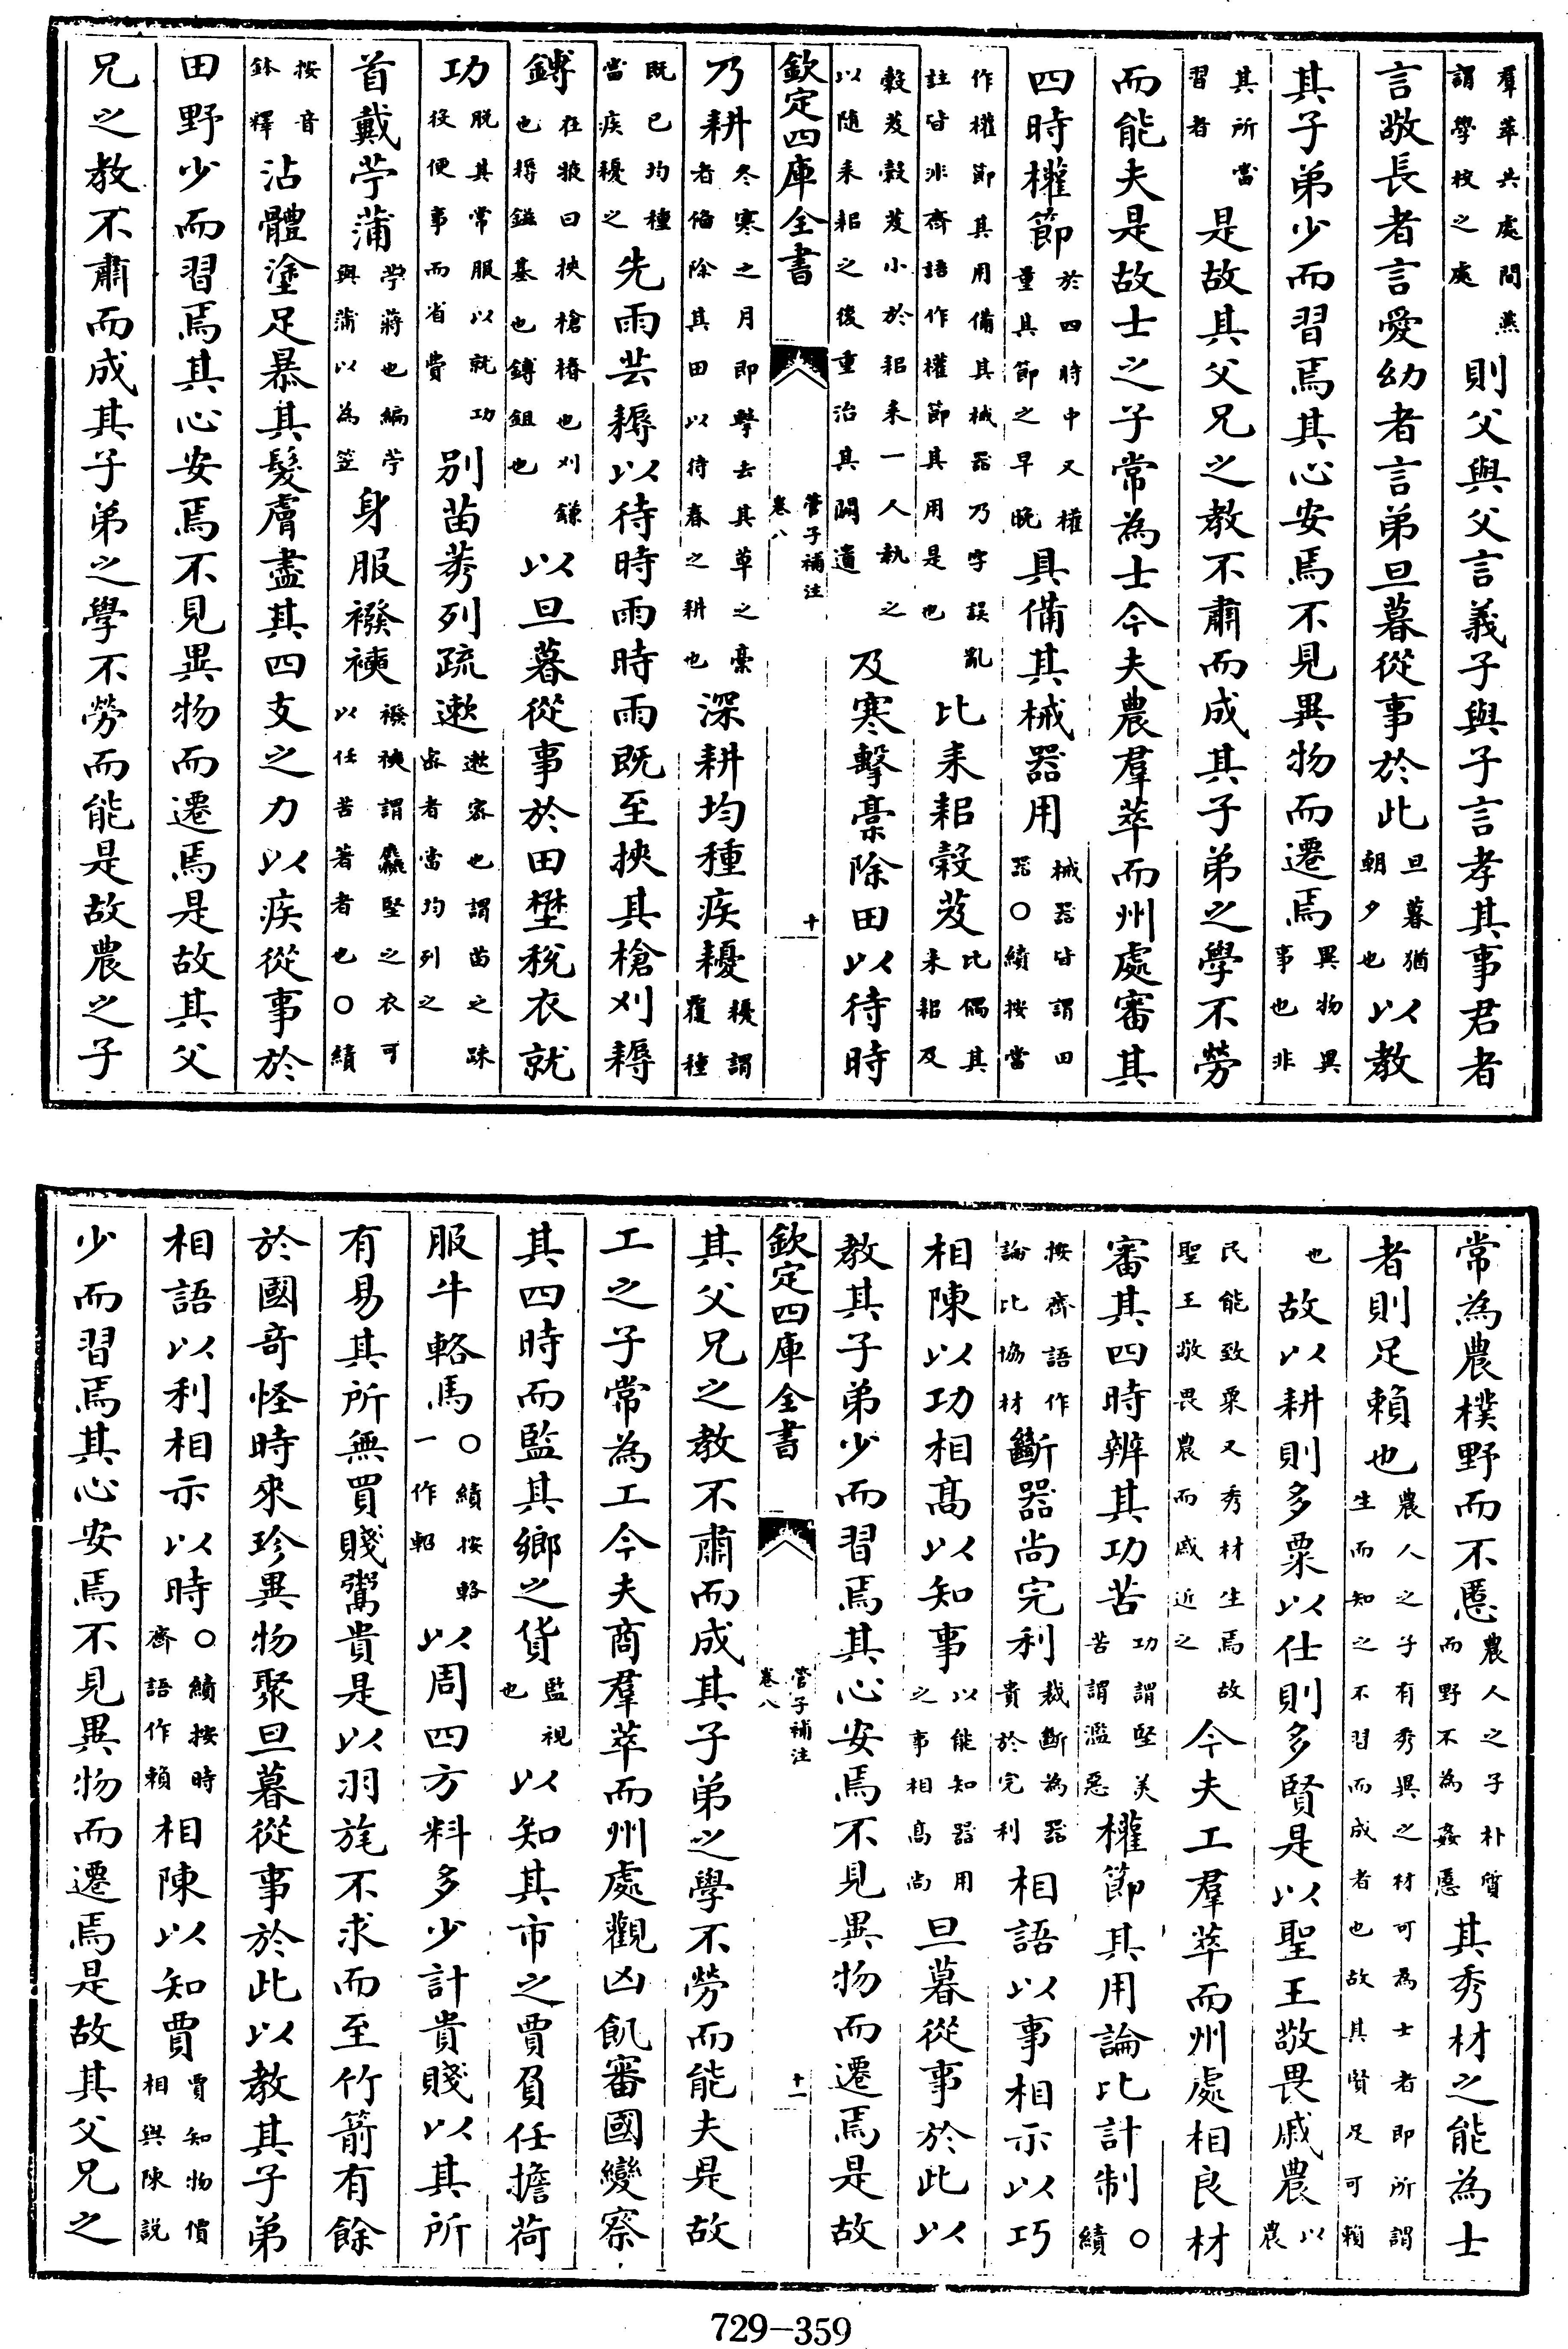 羣萃共處間燕謂學校之處則父與父言義子與子言孝其事君者
言敬長者言愛幼者言弟旦暮從事於此旦暮猶朝夕也以教
其子弟少而習焉其心安焉不見異物而遷焉異物異事也非
其所當習者是故其父兄之教不肅而成其子弟之學不勞
而能夫是故士之子常為士今夫農羣萃而州處審其
四時權節於四時中又權量其節之早晚具備其械器用械器皆謂田器○績按當
作權節其用備其械器乃字誤亂註皆非齊語作權節其用是也比耒耜穀芨比偶其耒耜及
穀芨穀芨小於耜耒一人執之以隨耒耜之後重治其闕遺及寒擊藁除田以待時
欽定四庫全書
管子補注
卷八
十
乃耕冬寒之月即擊去其草之藁者脩除其田以待春之耕也深耕均種疾耰耰謂覆種
既已均種當疾耰之先雨芸耨以待時雨時雨既至挾其槍刈耨
鎛在掖曰挾槍樁也刈鎌也耨鎡基也鎛鉏也以旦暮從事於田壄稅衣就
功脫其常服以就功役便事而省費別苗莠列疏遬遬密也謂苗之疎密者當均列之
首戴苧蒲苧蔣也編苧與蒲以為笠身服襏襫襏襫謂麤堅之衣可以任苦著者也○績
按音鉢釋沾體塗足暴其髮膚盡其四支之力以疾從事於
田野少而習焉其心安焉不見異物而遷焉是故其父
兄之教不肅而成其子弟之學不勞而能是故農之子
常為農樸野而不慝農人之子朴質而野不為姦慝其秀材之能為士
者則足賴也農人之子有秀異之材可為士者即所謂生而知之不習而成者也故其賢足可賴
也故以耕則多粟以仕則多賢是以聖王敬畏戚農以農
民能致粟又秀材生焉故聖王敬畏農而戚近之今夫工羣萃而州處相良材
審其四時辨其功苦功謂堅美苦謂濫惡權節其用論比計制○績
按齊語作論比協材斷器尚完利裁斷為器貴於完利相語以事相示以巧
相陳以功相高以知事以能知器用之事相高尚旦暮從事於此以
教其子弟少而習焉其心安焉不見異物而遷焉是故
欽定四庫全書
管子補注
卷八
十一
其父兄之教不肅而成其子弟之學不勞而能夫是故
工之子常為工今夫商羣萃而州處觀凶飢審國變察
其四時而監其鄉之貨監視也以知其市之賈負任擔荷
服牛輅馬○績按輅一作軺以周四方料多少計貴賤以其所
有易其所無買賤鬻貴是以羽旄不求而至竹箭有餘
於國奇怪時來珍異物聚旦暮從事於此以教其子弟
相語以利相示以時○績按時齊語作賴相陳以知賈賈知物價相與陳說
少而習焉其心安焉不見異物而遷焉是故其父兄之
729-359